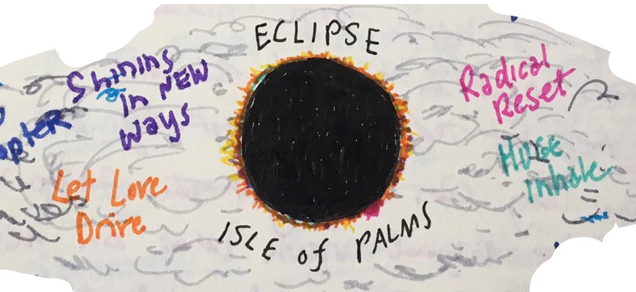 ECLIPSE
Shining
in NEW
ways
Let Love
Drive
Radical
Reset
Huge
inhale
ISLE of PALMS